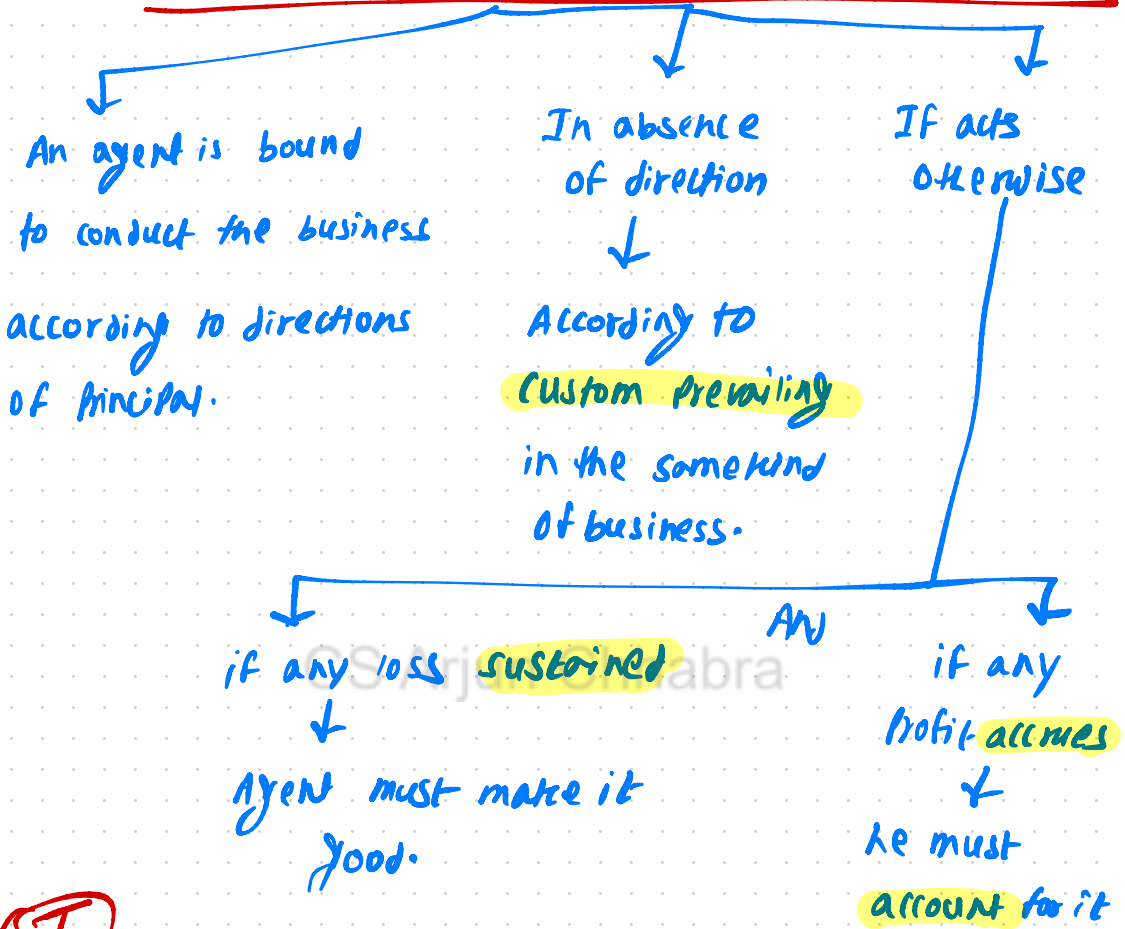 An agent is bound
to conduct the business
according to directions
of Principal.
In absence
of direction
According to
custom prevailing
in the same kind
of business.
If acts
otherwise
And
if any loss sustained
Agent must make it
good.
if any
Profit accrues
he must
account for it
CS Arjun Chhabra
I